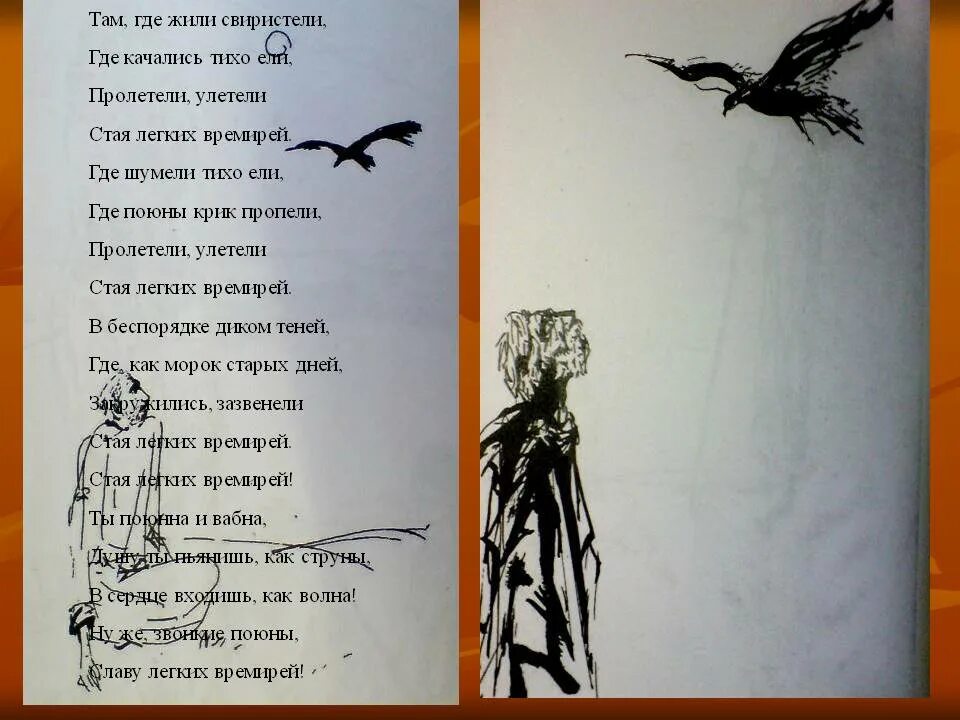 Там, где жили свиристели,
Где качались тихо ели,
Пролетели, улетели
Стая легких времирей.
Где шумели тихо ели,
Где поюны крик пропели,
Пролетели, улетели
Стая легких времирей.
В беспорядке диком теней,
Где, как морок старых дней,
Закружились, зазвенели
Стая легких времирей.
Стая легких времирей!
Ты поюнна и вабна,
Душу ты пьянишь, как струны,
В сердце входишь, как волна!
Ну же, звонкие поюны,
Славу легких времирей!